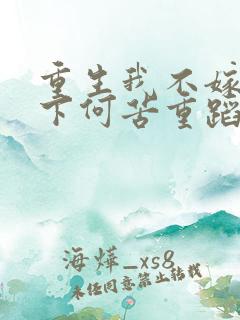 重生我不嫁
下何苦重蹈
海烨_xs8
未经同意禁止转载